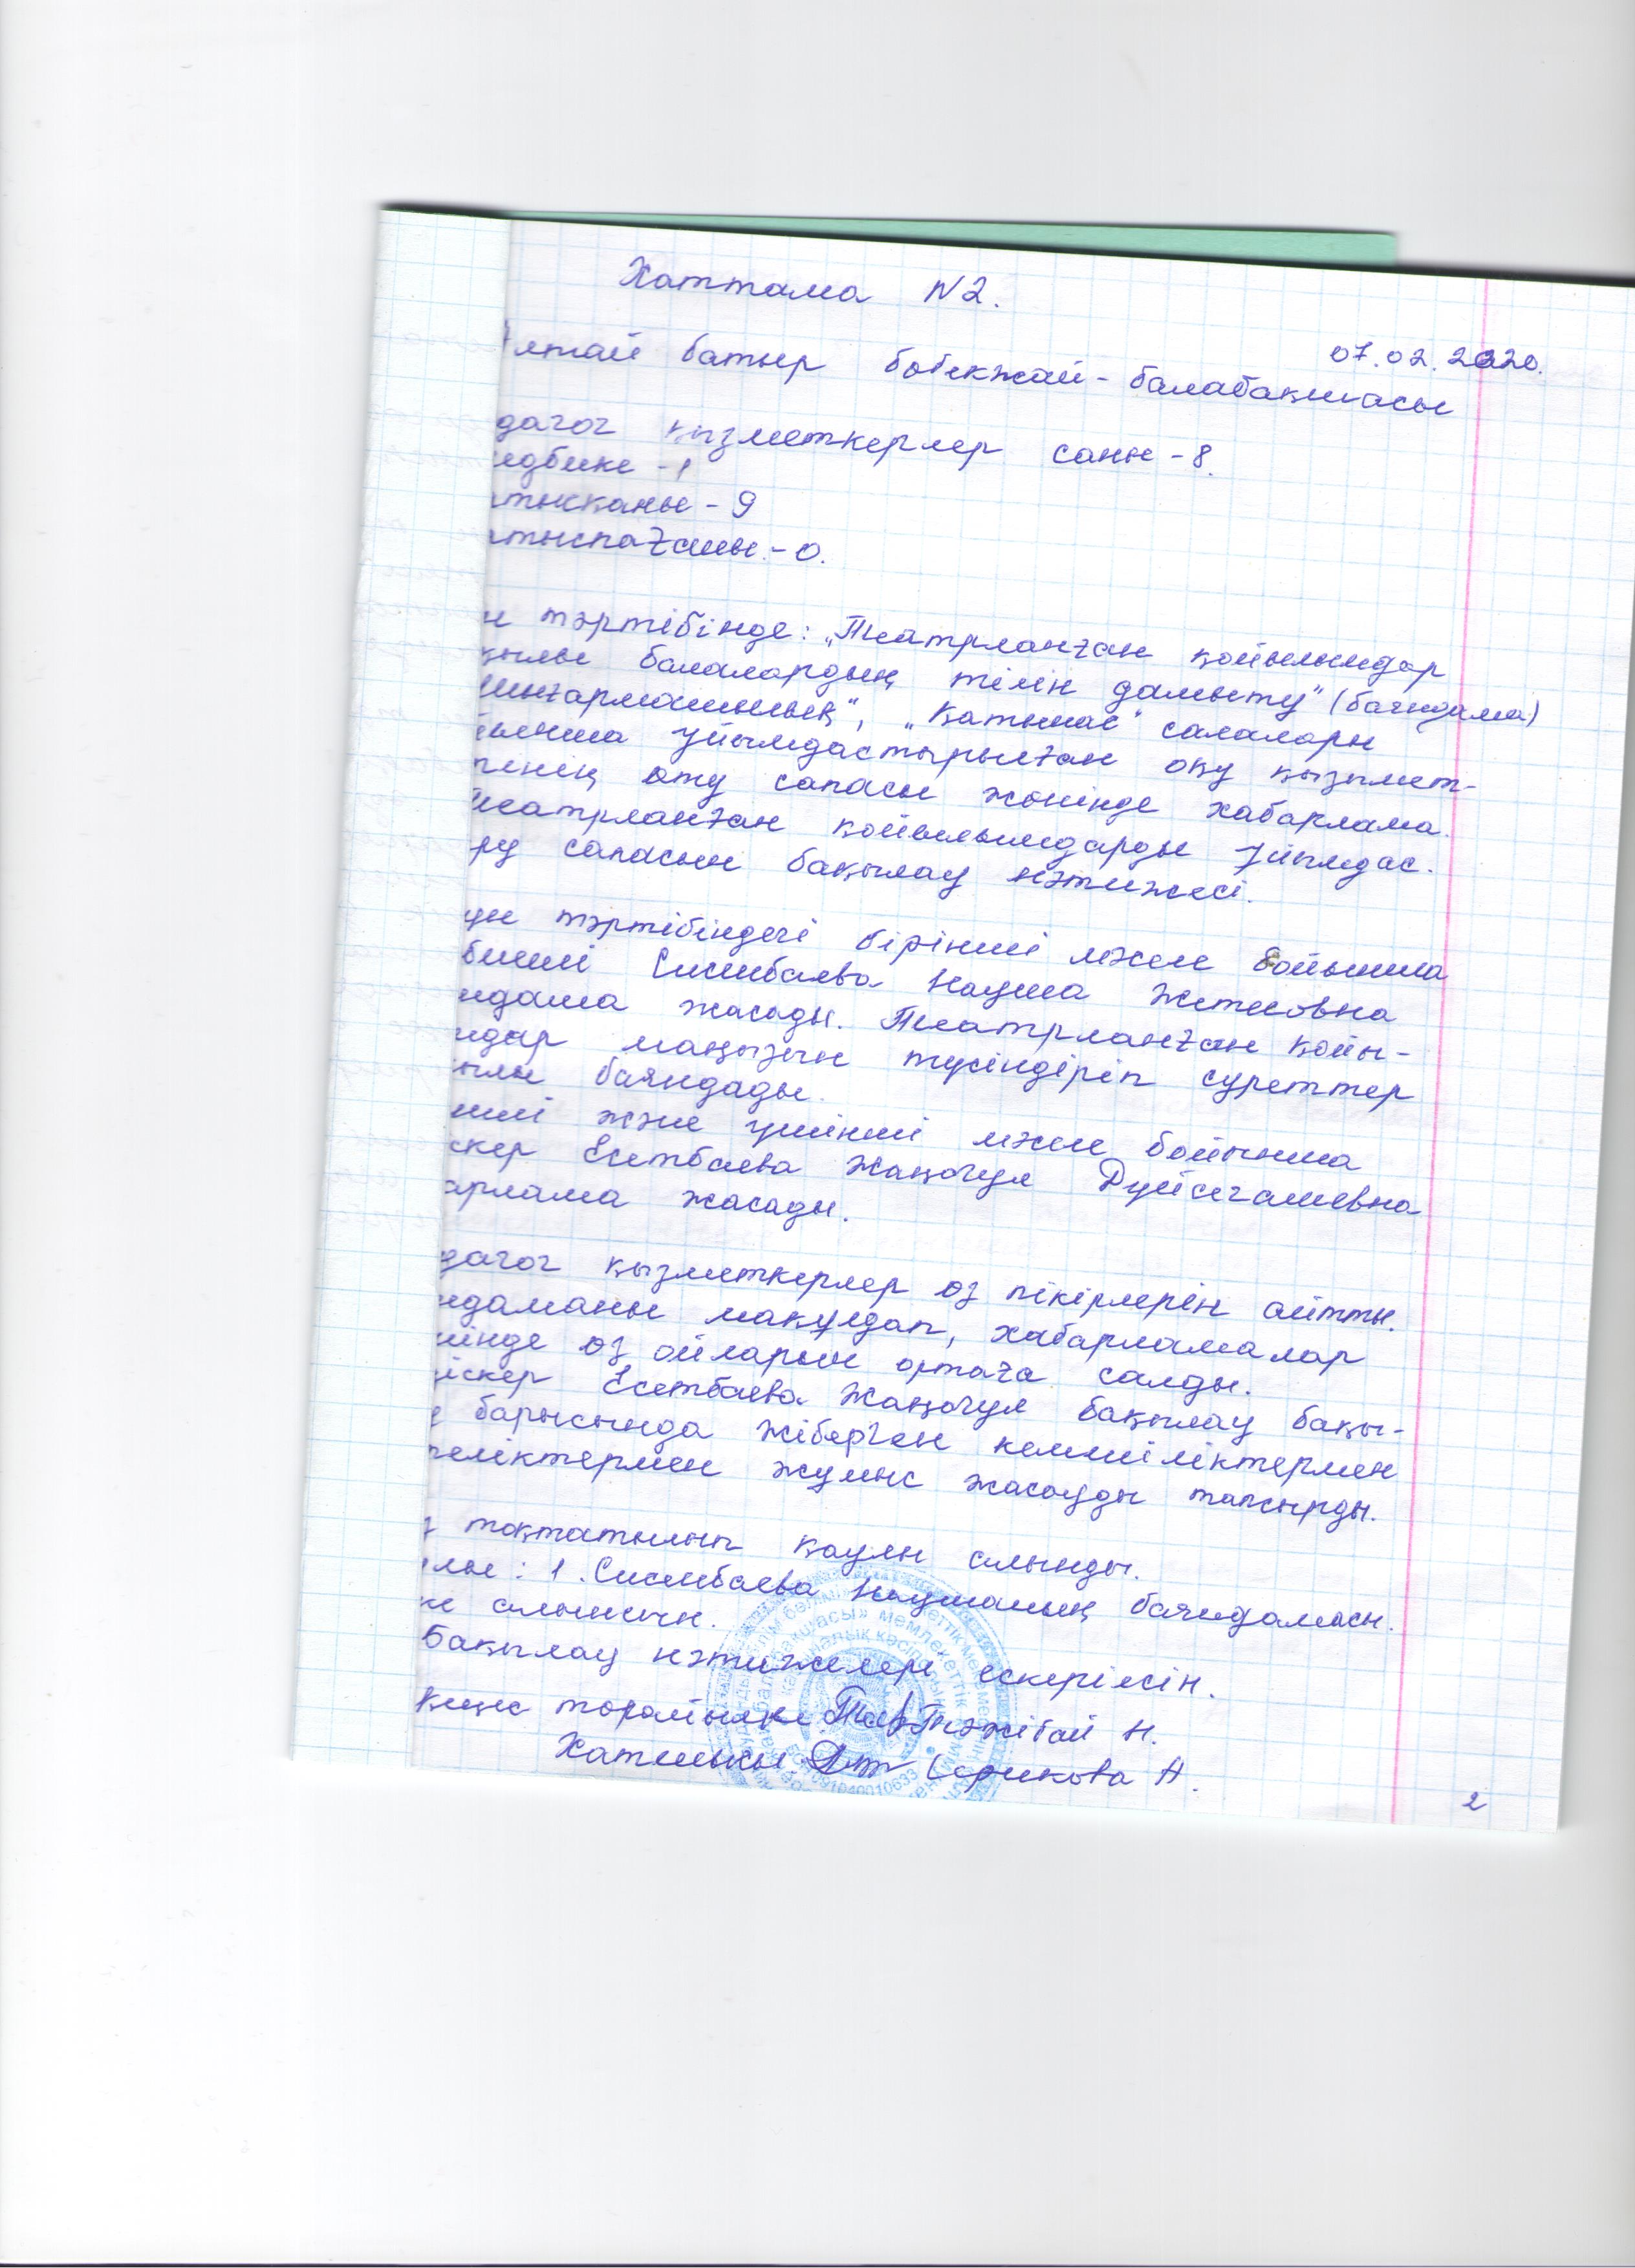 Хаттама N2.
07.02.2020.
лтай батыр бөбекжай-балабақшасы
дагог қызметкерлер саны-8.
едбике-1
тысқаны-9
тыспағаны-0.
н тәртібінде: „Театрланған қойылымдар
қылы балалардың тілін дамыту" (баяндама)
„Қатынас" салалары
йынша ұйымдастырылған оқу қызмет-
інің өту сапасы жөнінде хабарлама.
театрланған қойылымдарды ұйымдас.
ру сапасын бақылау нәтижесі.
үн тәртібіндегі бірінші мәселе бойынша
биеші Сисенбаева Наушa Жетесовна
ндама жасады. Театрланған қойы-
мдар маңызын түсіндіріп суреттер
ылы баяндады.
нші және үшінші мәселе бойынша
скер Есетбаева Жаңагүл Дүйсегалиевна
арлама жасады.
дагог қызметкерлер өз пікірлерін айтты.
ндаманы мақұлдап, хабарламалар
інде өз ойларын ортаға салды.
іскер Есетбаева Жаңагүл бақылау бақы-
у барысында жіберген кемшіліктермен
теліктермен жұмыс жасауды тапсырды.
тоқтатылып қаулы алынды.
лы: 1. Сисенбаева Наушаның баяндамасы.
ке алынсын.
Бақылау нәтижелері ескерілсін.
Кеңес торайымы Тәжібай Н.
Хатшысы Серикова А.
2